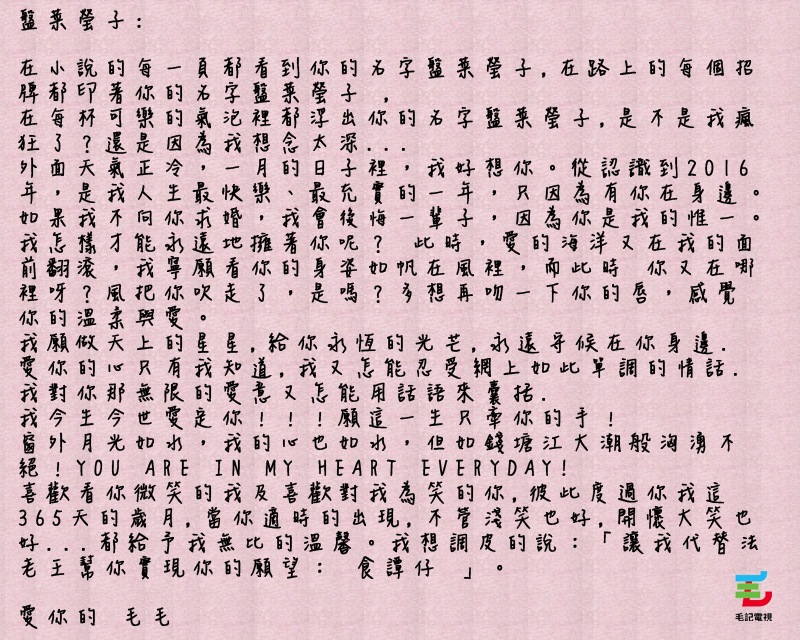 盤菜瑩子：
在小說的每一頁都看到你的名字盤菜瑩子,在路上的每個招
牌都印著你的名字盤菜瑩子 ,
在每杯可樂的氣泡裡都浮出你的名字盤菜瑩子,是不是我瘋
狂了？還是因為我想念太深...
外面天氣正冷，一月的日子裡，我好想你。從認識到2016
年，是我人生最快樂、最充實的一年，只因為有你在身邊。
如果我不向你求婚，我會後悔一輩子，因為你是我的惟一。
我怎樣才能永遠地擁著你呢？ 此時，愛的海洋又在我的面
前翻滾，我寧願看你的身姿如帆在風裡，而此時 你又在哪
裡呀？風把你吹走了，是嗎？多想再吻一下你的唇，感覺
你的溫柔與愛。
我願做天上的星星,給你永恆的光芒,永遠守候在你身邊.
愛你的心只有我知道,我又怎能忍受網上如此單調的情話.
我對你那無限的愛意又怎能用話語來囊括.
我今生今世愛定你！！！願這一生只牽你的手！
窗外月光如水，我的心也如水，但如錢塘江大潮般洶湧不
絕！YOU ARE IN MY HEART EVERYDAY!
喜歡看你微笑的我及喜歡對我為笑的你,彼此度過你我這
365天的歲月,當你適時的出現,不管淺笑也好,開懷大笑也
好...都給予我無比的溫馨。我想調皮的說：「讓我代替法
老王幫你實現你的願望： 食譚仔 」。
愛你的 毛毛
毛記電視